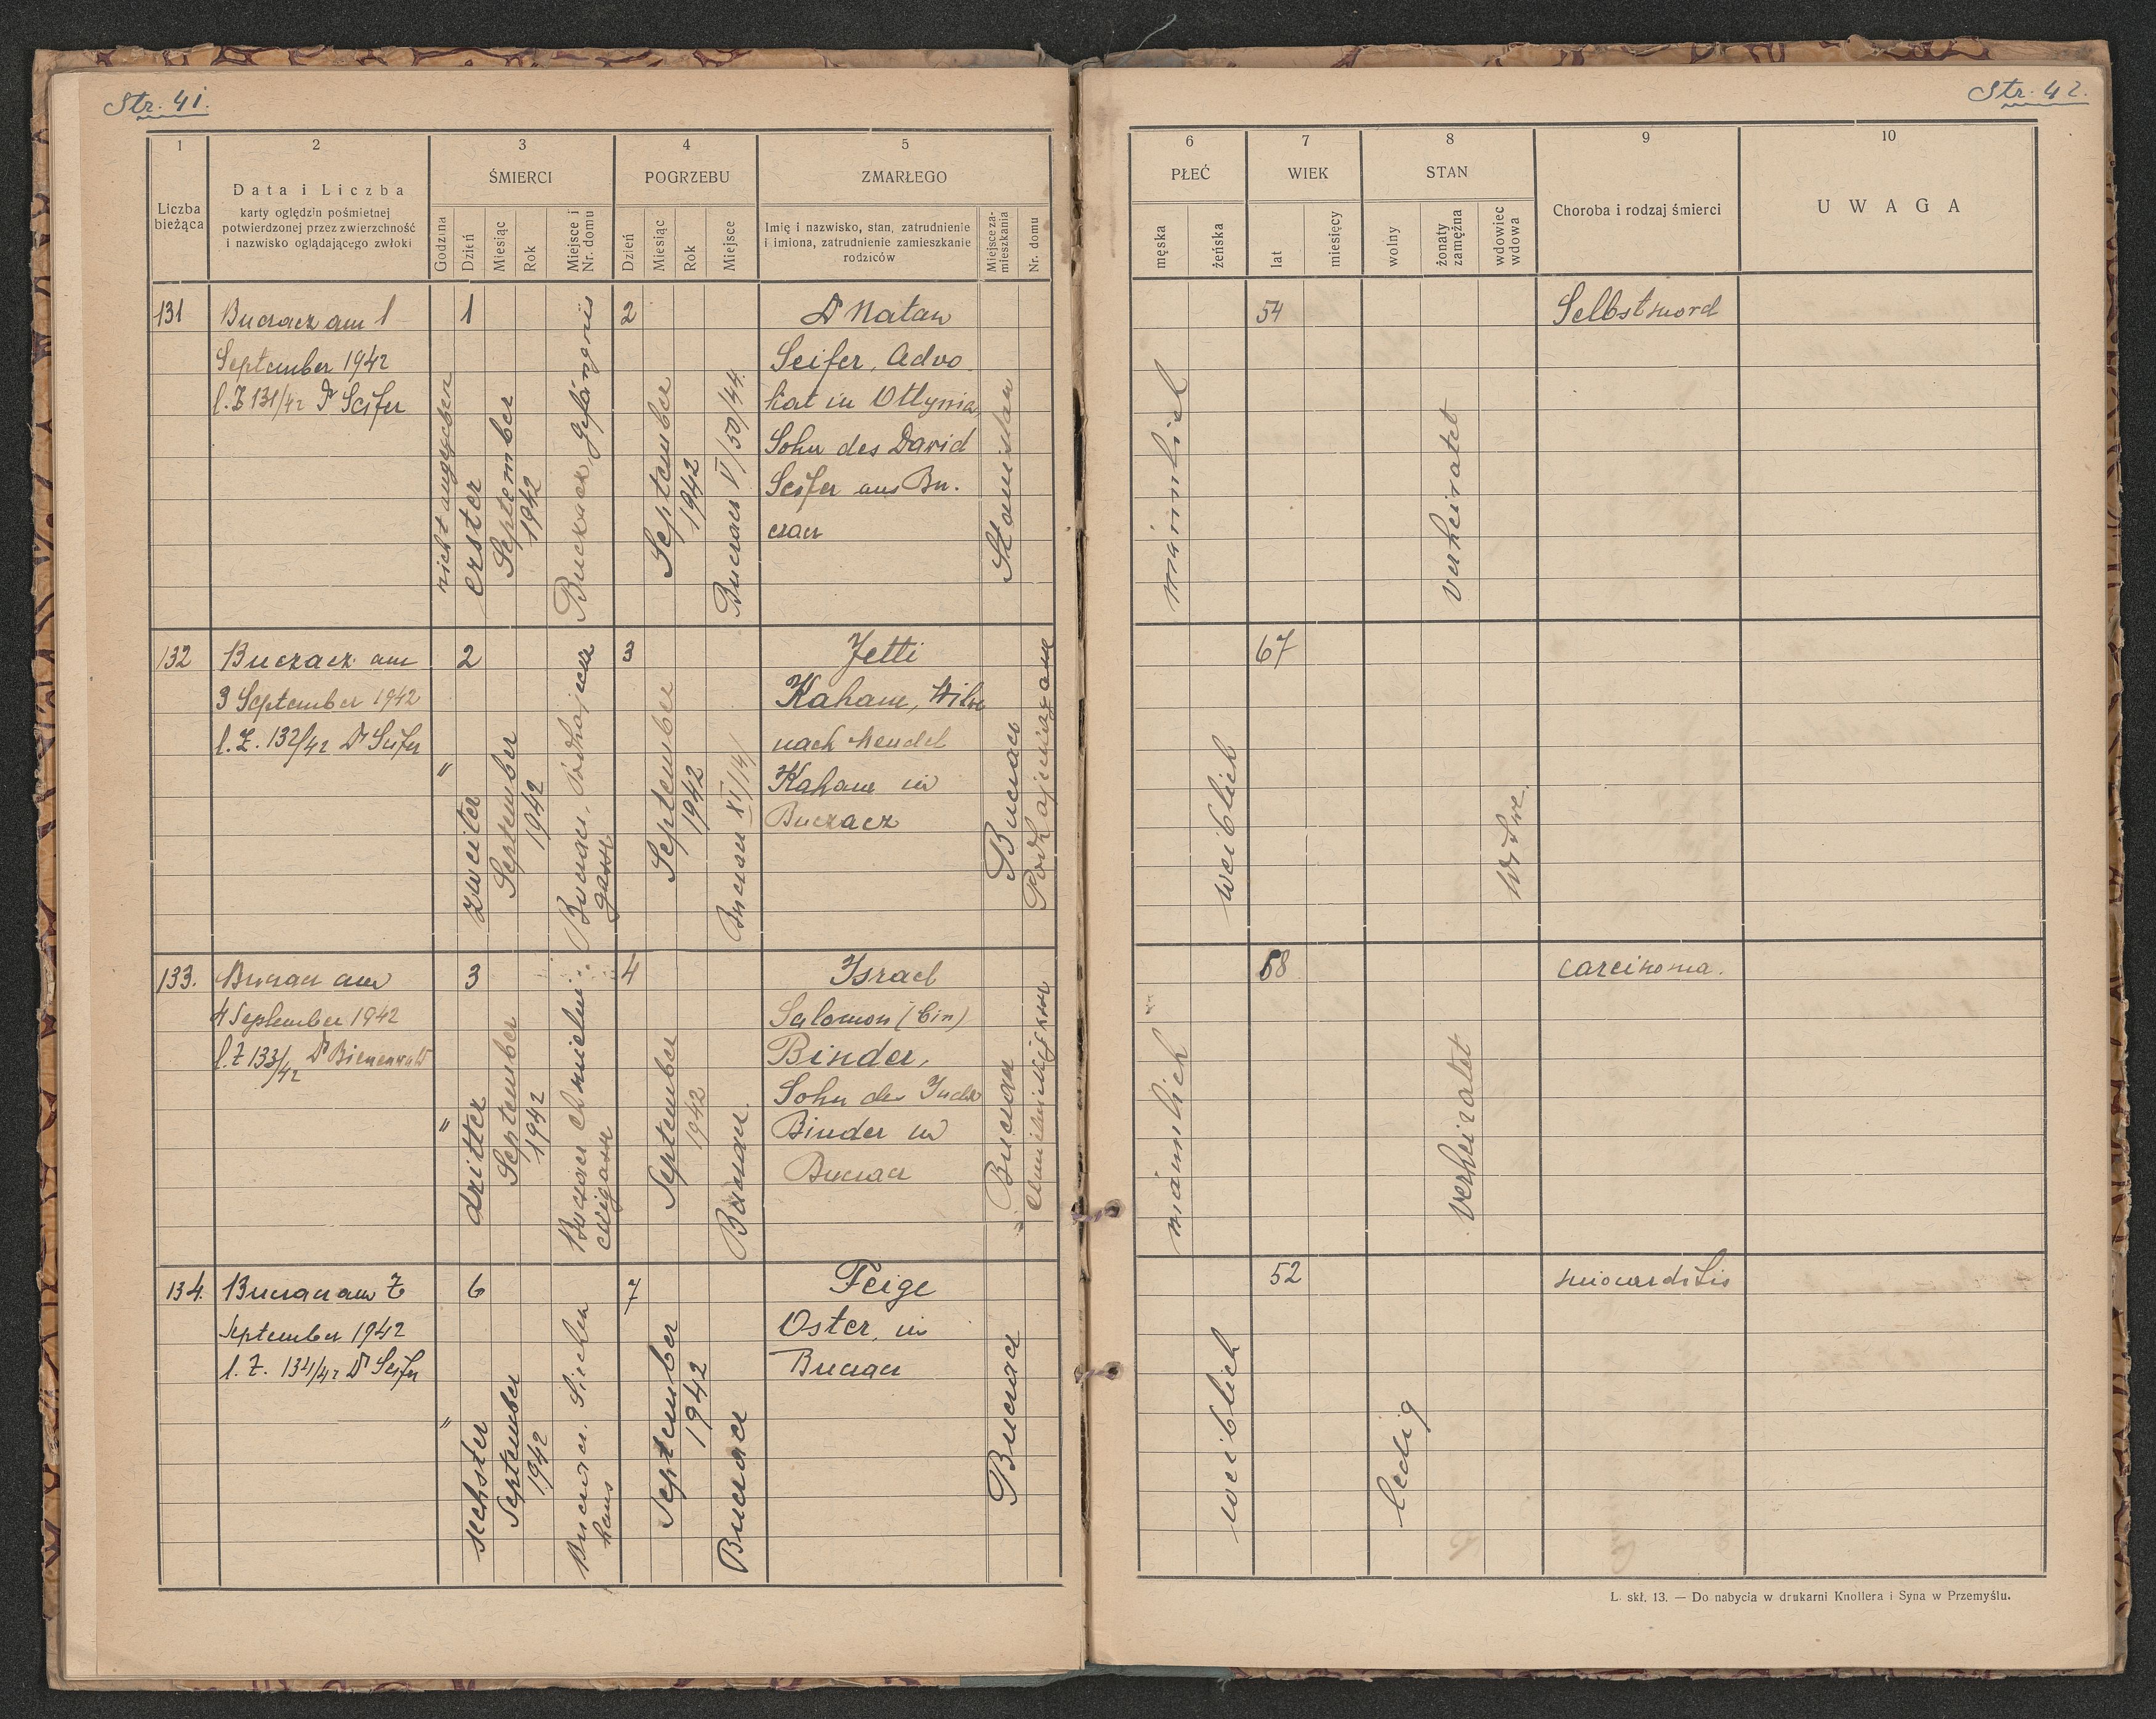 Str. 41.
1
2
3
4
5
Data i Liczba
karty oględzin pośmietnej
potwierdzonej przez zwierzchność
i nazwisko oglądającego zwłoki
Liczba
bieżąca
ŚMIERCI
POGRZEBU
ZMARŁEGO
Godzina
Dzień
Miesiąc
Rok
Miejsce i
Nr. domu
Dzień
Miesiąc
Rok
Miejsce
Imię i nazwisko, stan, zatrudnienie
i imiona, zatrudnienie zamieszkanie
rodziców
Miejsce za-
mieszkania
Nr. domu
131
Buczacz am 1
September 1942
l. Z 131/42 Dr Seifer
nicht angegeben
1
erster
September
1942
Buczacz, Gefängnis
2
September
1942
Buczacz VI/50/44.
Dr Natan
Seifer, Advo
kat in Ottynia,
Sohn des David
Seifer aus Bu.
czacz
Stanislau
132
Buczacz am
3 September 1942
l. Z. 132/42 Dr Seifer
"
2
zweiter
September
1942
Buczacz, Podhajcer
gasse
3
September
1942
Buczacz XI/14/
Jetti
Kahane, Witwe
nach Mendel
Kahane in
Buczacz
Buczacz
133.
Buczacz am
4 September 1942
l. Z 133/42 Dr Bienenwald
"
3
dritter
September
1942
Buczacz
4
September
1942
Buczacz.
Israel
Salomon (bin)
Binder,
Sohn des
Binder in
Buczacz
Buczacz
134.
Buczacz am 7
September 1942
l. Z. 134/42 Dr Seifer
"
6
sechster
September
1942
Buczacz. Siechen
haus
7
September
1942
Buczacz
Feige
Oster, in
Buczacz
Buczacz
Str. 42.
6
7
8
9
10
PŁEĆ
WIEK
STAN
Choroba i rodzaj śmierci
UWAGA
męska
żeńska
lat
miesięcy
wolny
żonaty
zamężna
wdowiec
wdowa
männlich
54
verheiratet
Selbstmord
weiblich
67
Witwe.
männlich
68
verheiratet
carcinoma.
weiblich
52
ledig
miocarditis
L. skł. 13. — Do nabycia w drukarni Knollera i Syna w Przemyślu.